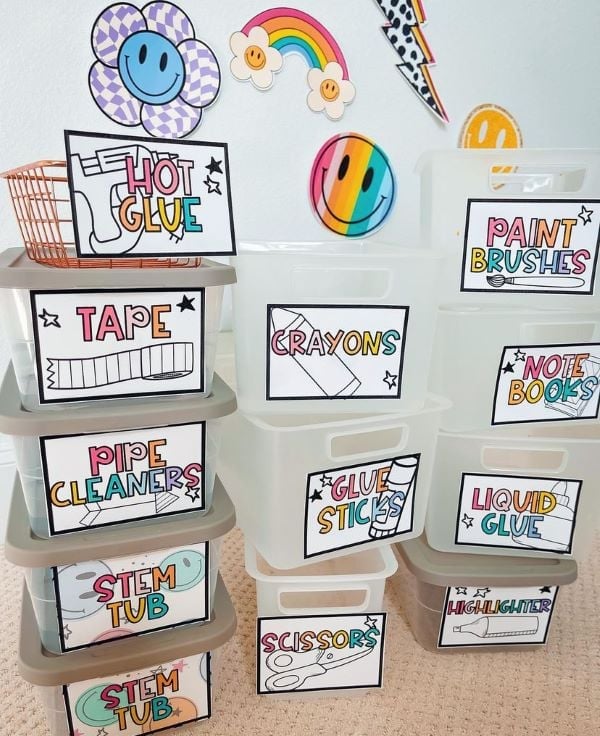 HOT
GLUE
TAPE
PIPE
CLEANERS
STEM
TUB
STEM
TUB
CRAYONS
GLUE
STICKS
SCISSORS
PAINT
BRUSHES
NOTE
BOOKS
LIQUID
GLUE
HIGHLIGHTER